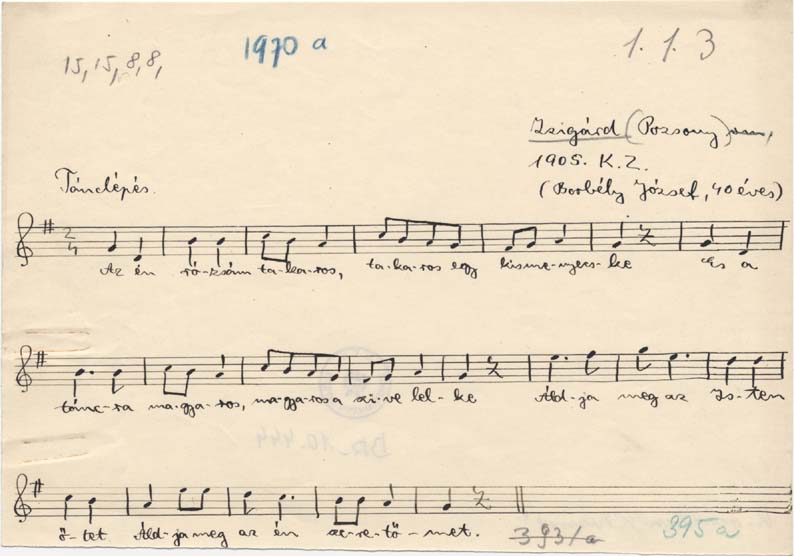 15, 15, 8, 8,
1970 a
1.1.3
Zsigárd (Pozsony)
1905. K. Z.
(Borbély József, 40 éves)
Tánclépés.
2/4
Az én ró-zsám ta-ka-ros, ta-ka-ros egy kisme-nyecs-ke És a
tánc-ra ma-gya-ros, ma-gya-ros a szi-ve lel-ke Áld-ja meg az Is-ten
ő-tet Áld-ja meg az én sze-re-tő-met.
393/a
395a